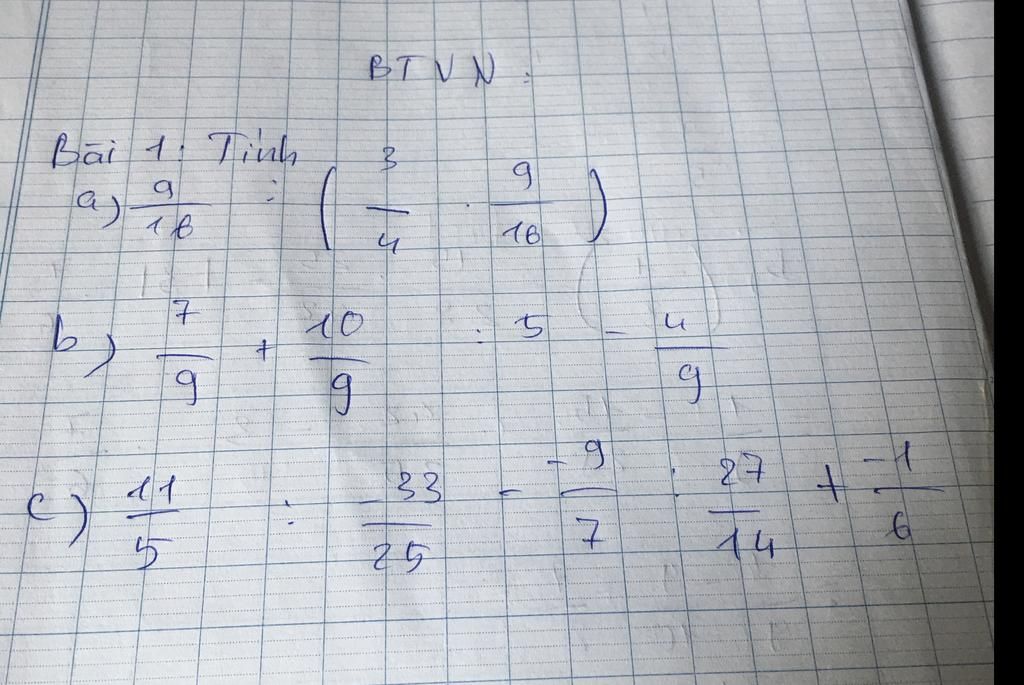 BTVN:
Bài 1: Tính
a) 9/16 : (3/4 . 9/16)
b) 7/9 + 10/9 : 5 - 4/9
c) 11/5 : -33/25 - -9/7 : 27/14 + -1/6